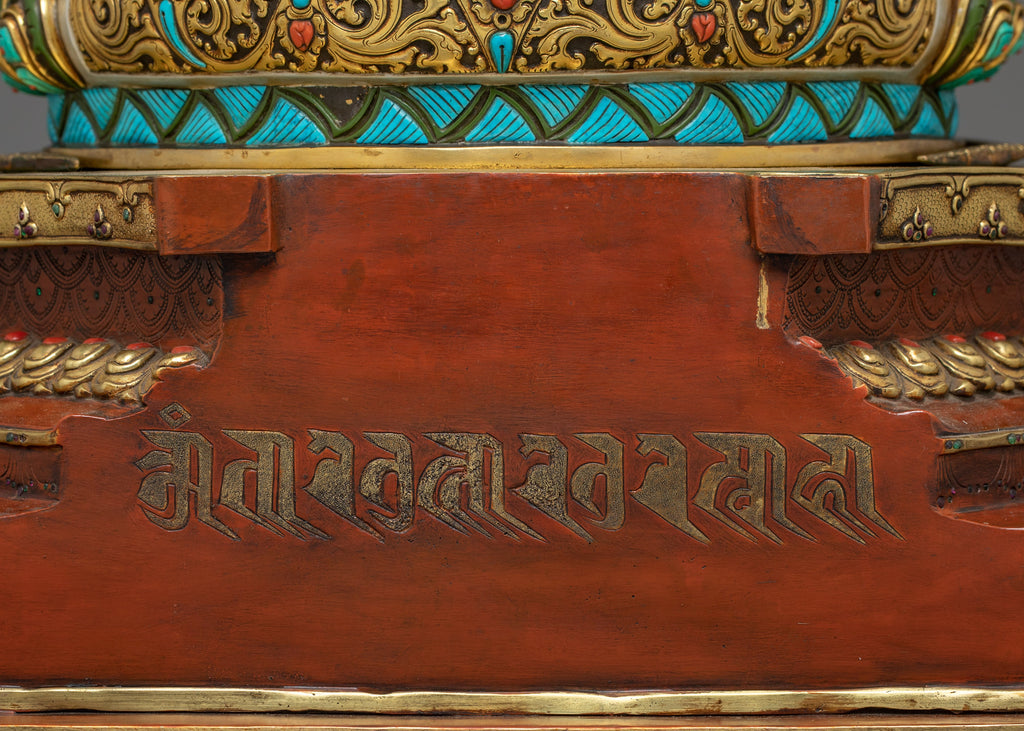 ओं तारे तुत्तारे तुरे स्वाहा